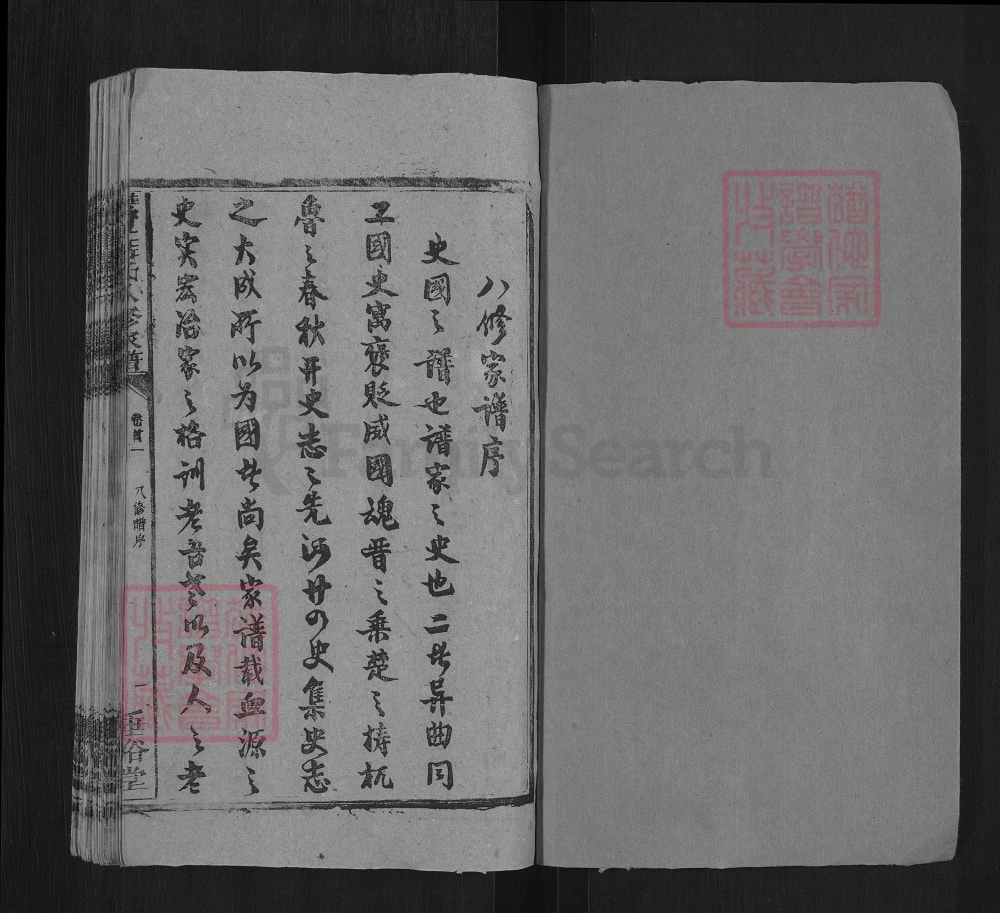 八修家谱序
史國之譜也譜家之史也二者异曲同
工國史寓褒貶威國魂晋之乘楚之梼杌
魯之春秋开史志之先河廿四史集史志
之大成所以为國者尚矣家谱载血源之
史实宏治家之格训老吾老以及人之老
八修家譜
卷首一
八修譜序
一
垂裕堂
譜學會
藏
FamilySearch